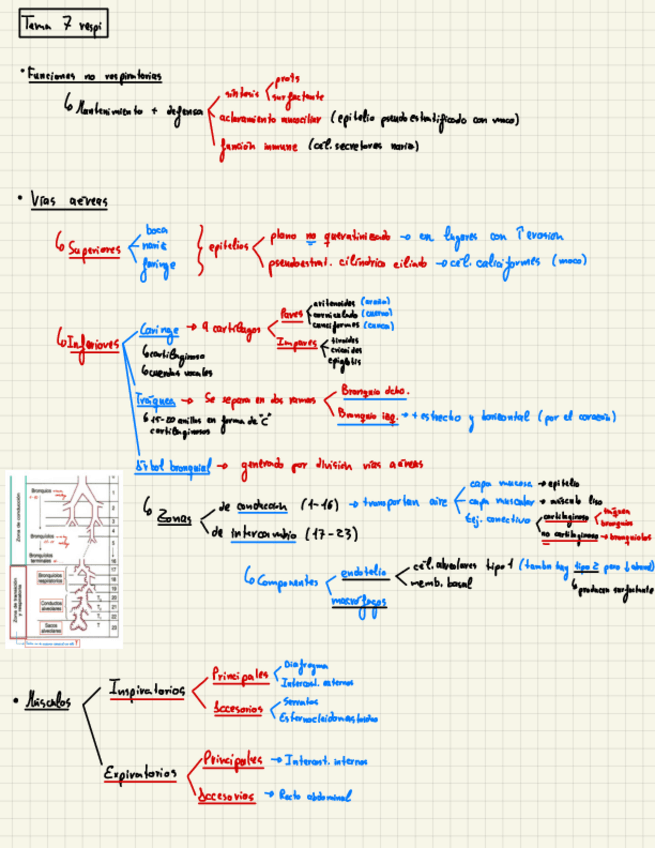 Tema 7 respi
• Funciones no respiratorias
↳ Mantenimiento + defensa
síntesis
prots
surfactante
aclaramiento mucociliar (epitelio pseudoestratificado con moco)
función inmune (cél. secretoras nariz)
• Vías aéreas
↳ Superiores
boca
nariz
faringe
epitelios
plano no queratinizado → en lugares con ↑ erosión
pseudoestrat. cilíndrico ciliado → cél. caliciformes (moco)
↳ Inferiores
Laringe → 9 cartílagos
Pares
aritenoides
corniculado
cuneiformes
Impares
tiroides
cricoides
epiglotis
↳ cartilaginoso
↳ cuerdas vocales
Tráquea → Se separa en dos ramas
Bronquio dcho.
Bronquio izq. → + estrecho y horizontal (por el corazón)
↳ 15-20 anillos en forma de "C"
cartilaginosos
Árbol bronquial → generado por división vías aéreas
↳ Zonas
de conducción (1-16) → transportan aire
capa mucosa → epitelio
capa muscular → músculo liso
tej. conectivo
cartilaginoso
tráquea
bronquios
no cartilaginoso → bronquiolos
de intercambio (17-23)
↳ Componentes
endotelio
cél. alveolares tipo 1 (también hay tipo 2 pero
↳ producen surfactante
memb. basal
macrófagos
Zona de conducción
Bronquios
Bronquiolos
Bronquiolos terminales
Zona de transición y respiratoria
Bronquiolos respiratorios
Conductos alveolares
Sacos alveolares
• Músculos
Inspiratorios
Principales
Diafragma
Intercost. externos
Accesorios
Serratos
Esternocleidomastoideo
Expiratorios
Principales → Intercost. internos
Accesorios → Recto abdominal